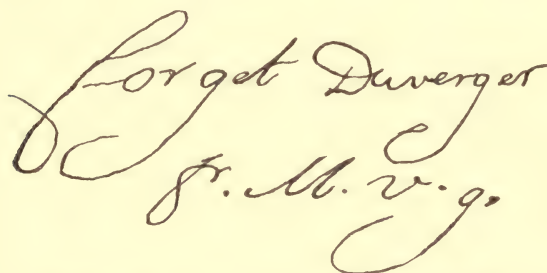 forget Duverger
ptr. M. v. g.